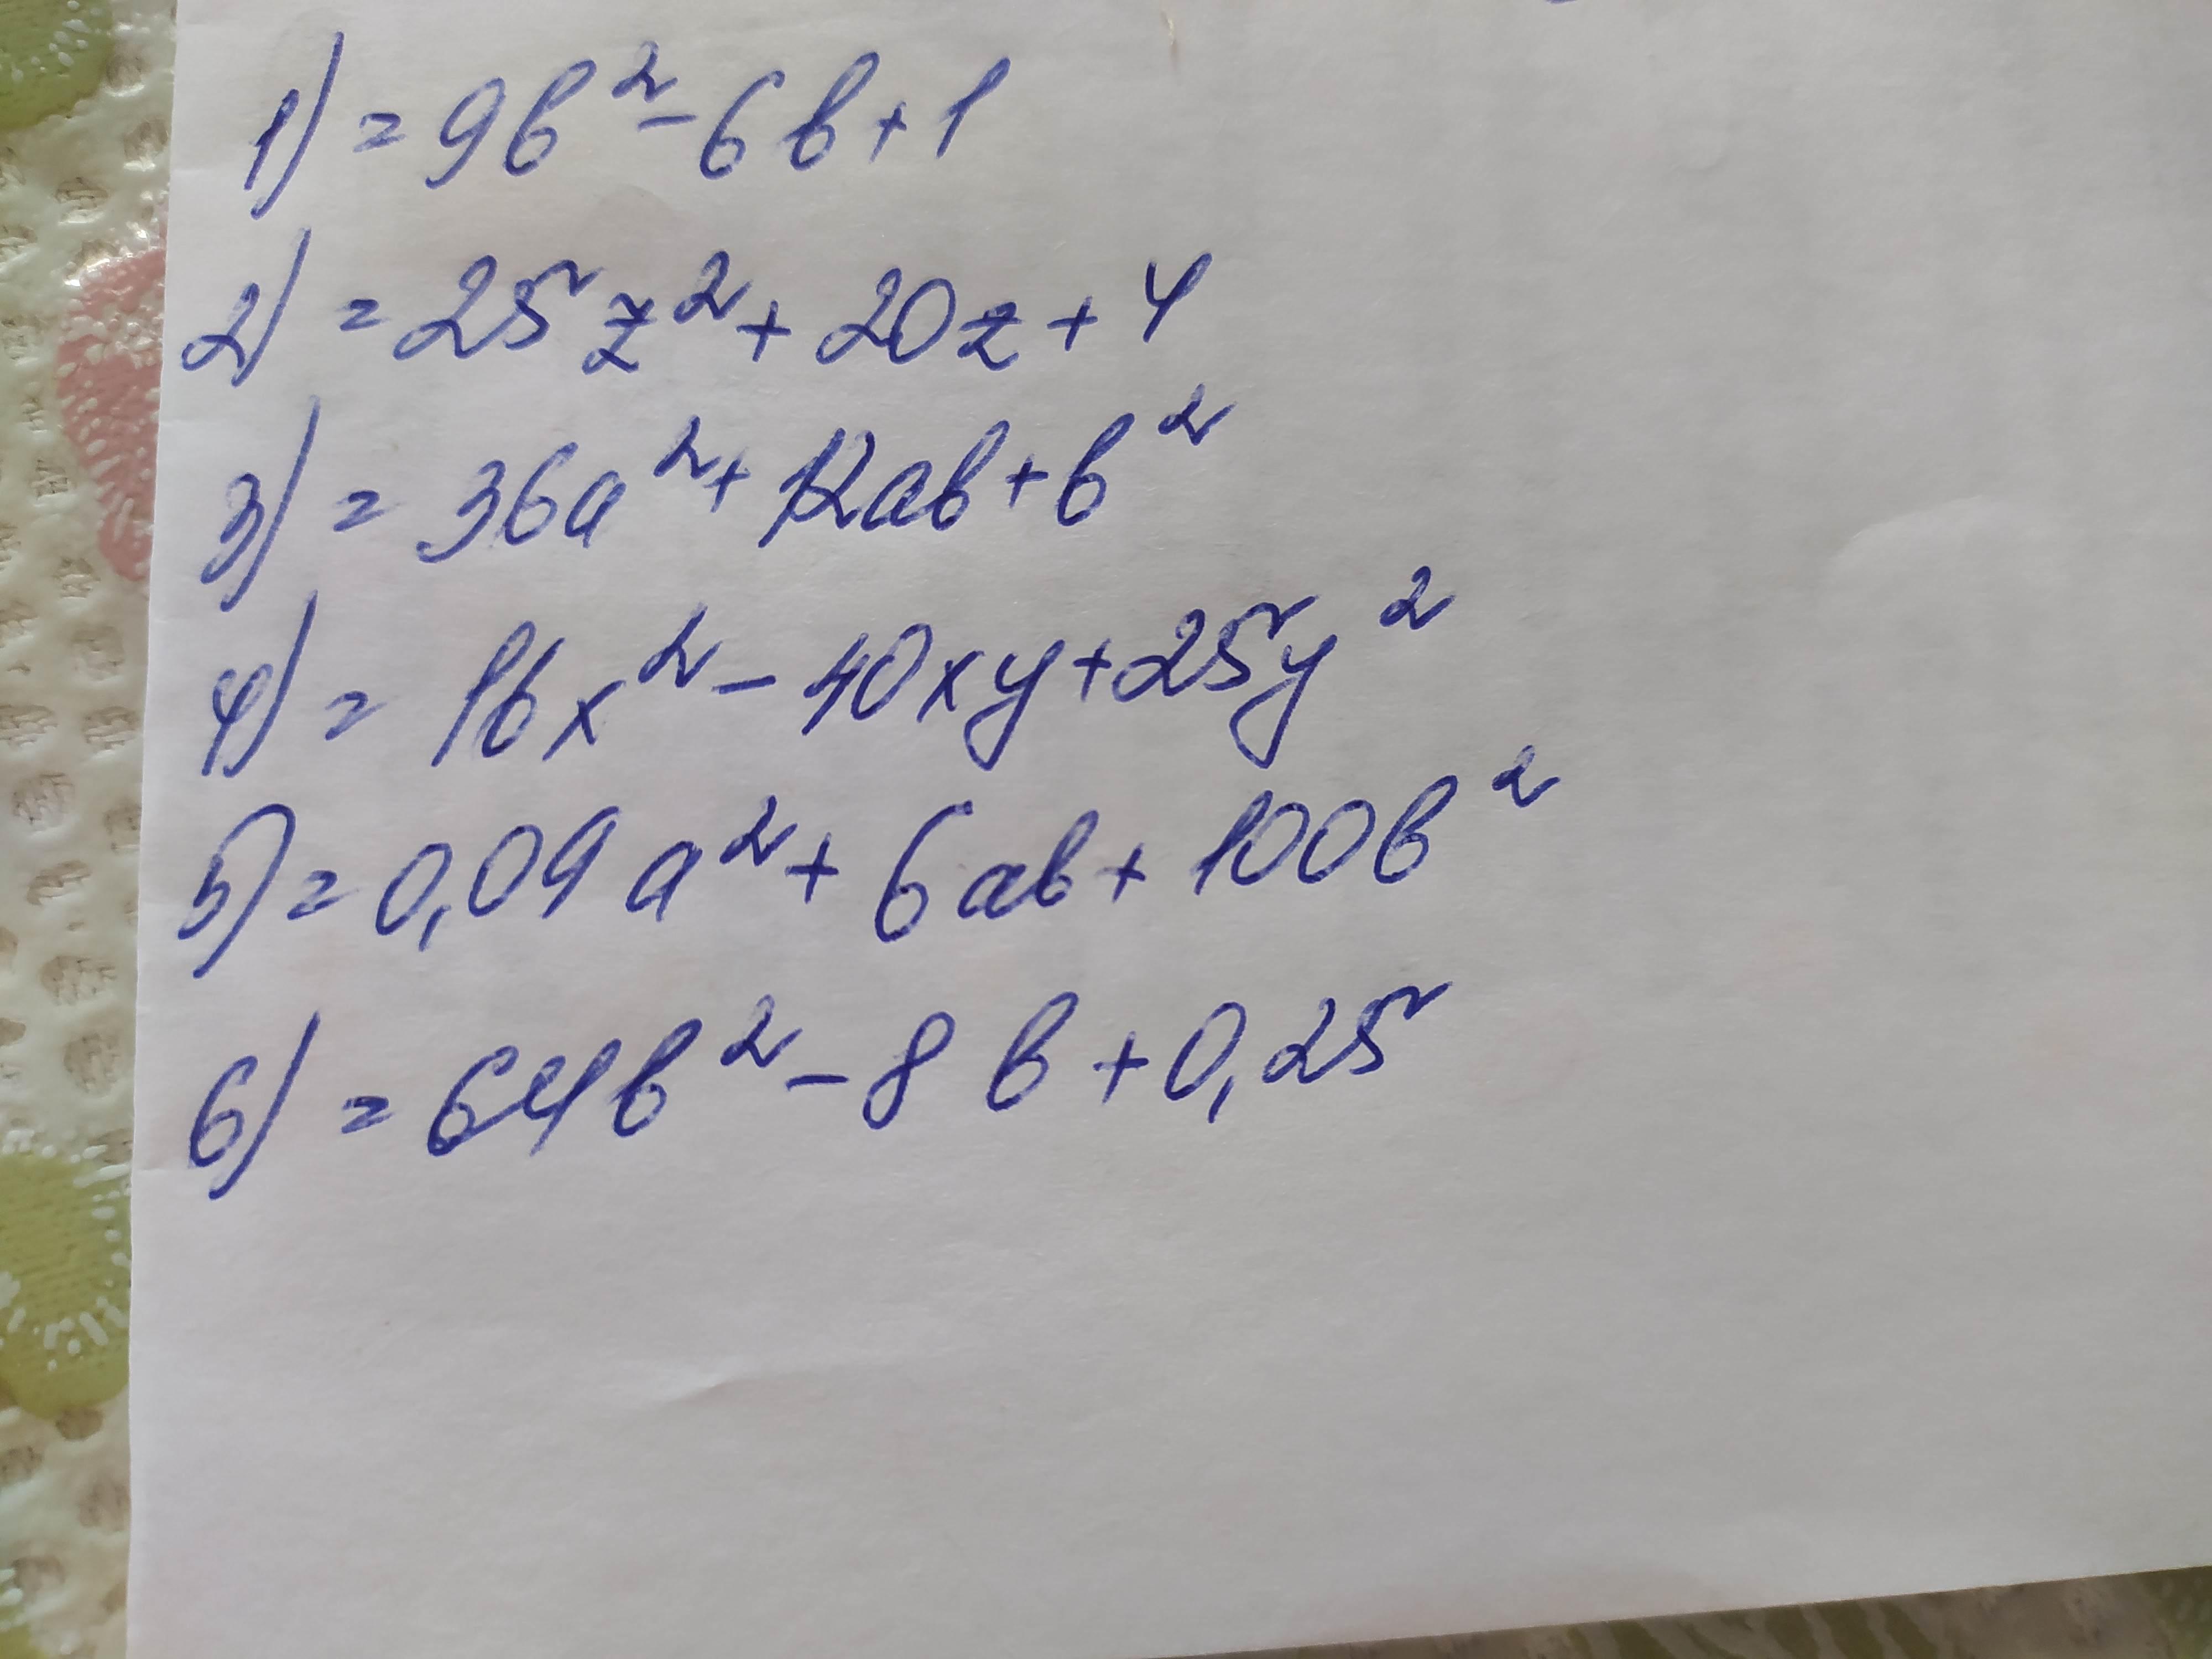 1) = 9b² - 6b + 1
2) = 25z² + 20z + 4
3) = 36a² + 12ab + b²
4) = 16x² - 40xy + 25y²
5) = 0,09a² + 6ab + 100b²
6) = 64b² - 8b + 0,25